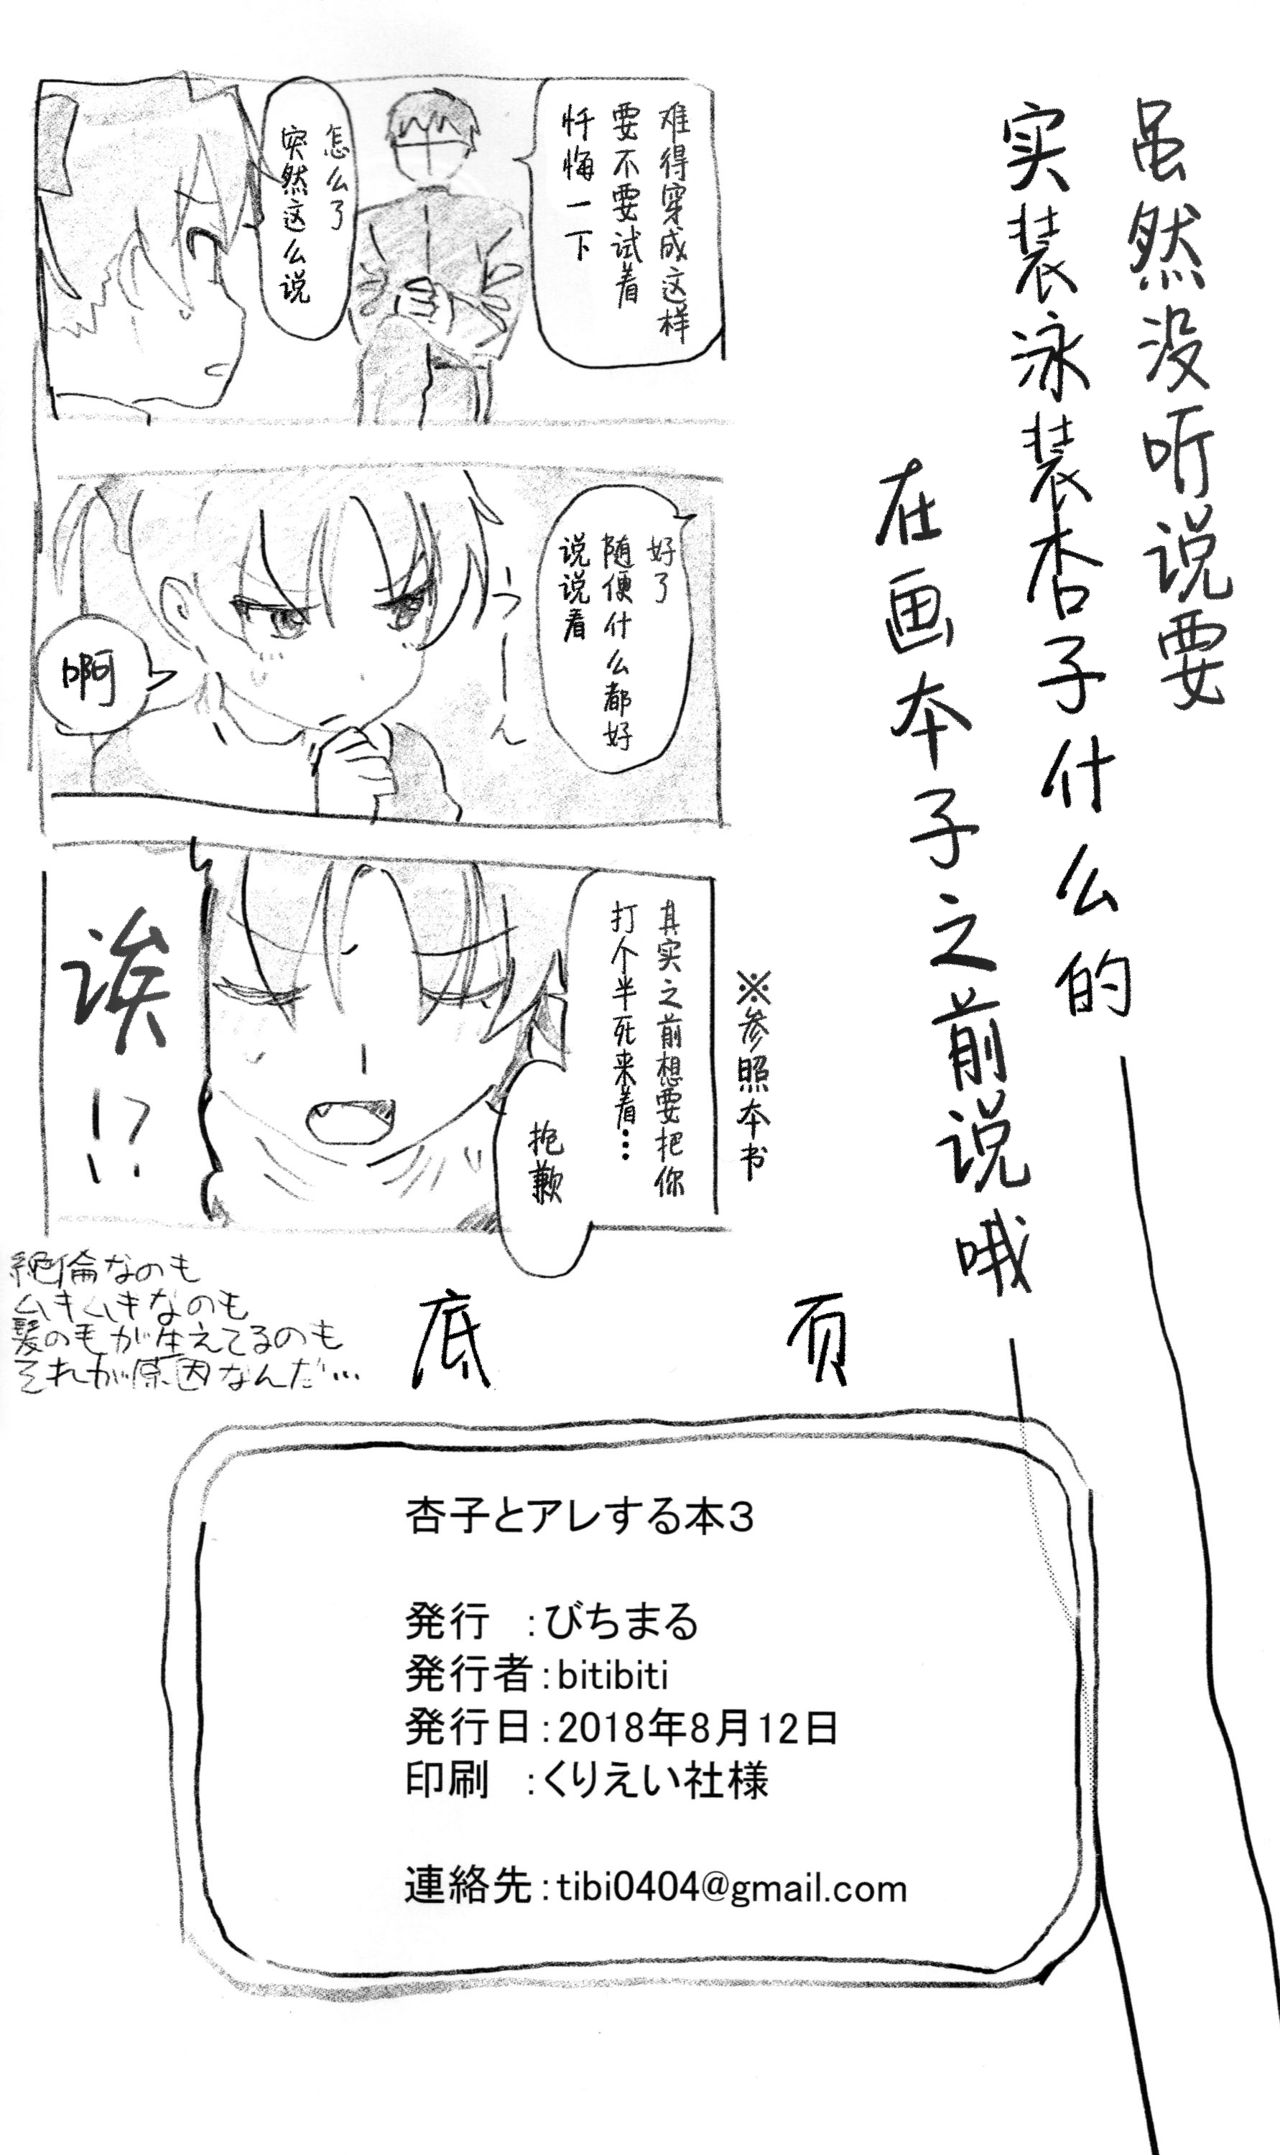 虽然没听说要
实装泳装杏子什么的
在画本子之前说哦
难得穿成这样
要不要试着
忏悔一下
怎么了
突然这么说
好了
随便什么都好
说说看
うーん
啊
※参照本书
其实之前想要把你
打个半死来着…
抱歉
诶!?
絶倫なのも
ムキムキなのも
髪の毛が生えてるのも
それが原因なんだ…
底页
杏子とアレする本3
発行 :びちまる
発行者:bitibiti
発行日:2018年8月12日
印刷 :くりえい社様
連絡先:tibi0404@gmail.com